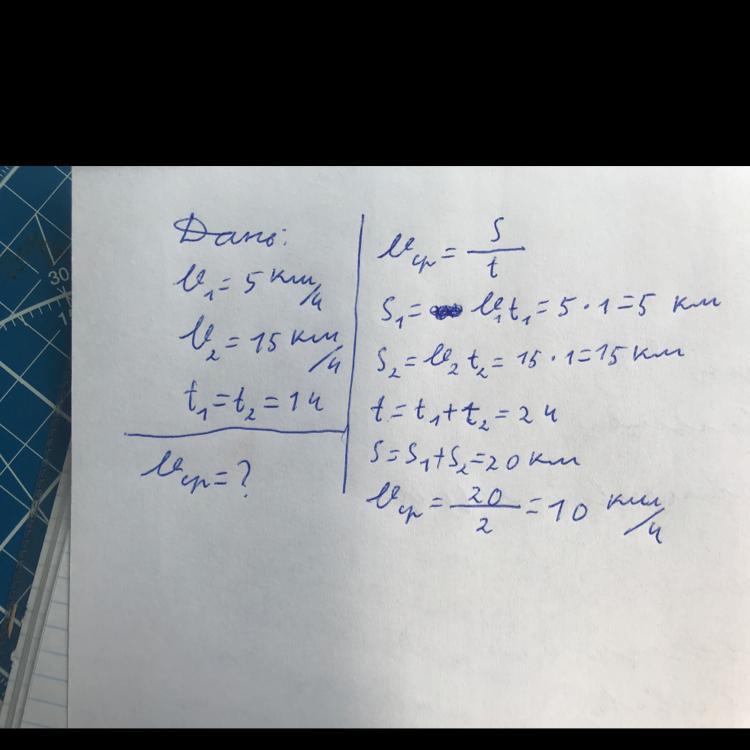 Дано:
v₁ = 5 км/ч
v₂ = 15 км/ч
t₁ = t₂ = 1 ч
vср = ?
vср = S/t
S₁ = v₁t₁ = 5 · 1 = 5 км
S₂ = v₂t₂ = 15 · 1 = 15 км
t = t₁ + t₂ = 2 ч
S = S₁ + S₂ = 20 км
vср = 20/2 = 10 км/ч
30